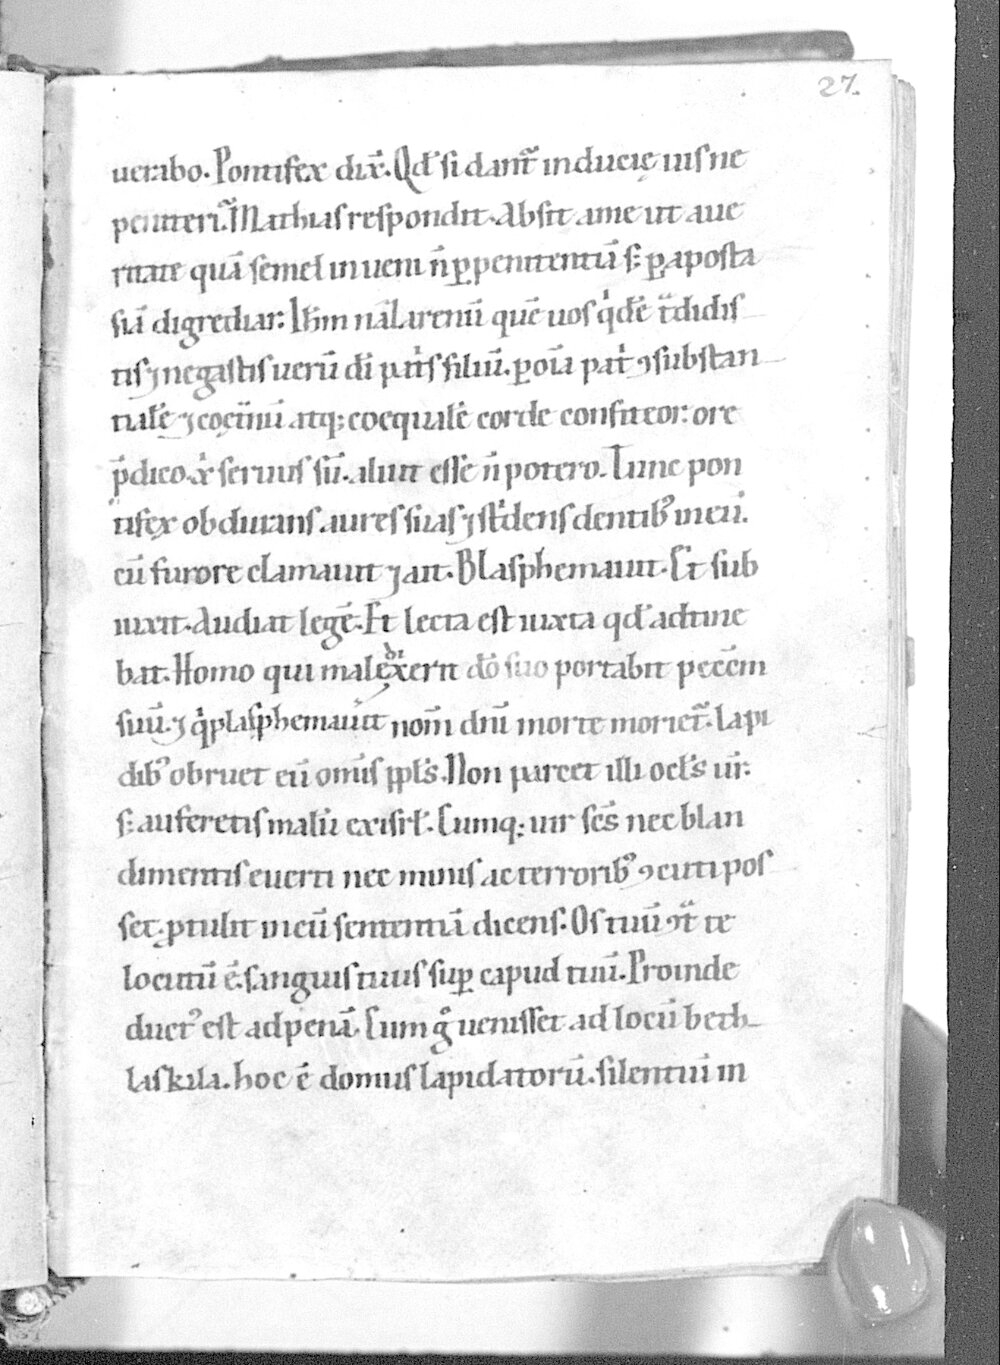 27.
uerabo. Pontifex dix̄. Qd̄ si dant᷑ induciȩ uis ne
peniteri. Mathias respondit. Absit a me ut a ue
ritate quā semel inueni n̄ ꝑ penitentiā s; ꝑ aposta
siā digrediar. Ih̄m naẓarenū quē uos q̇dē t̄didis
tis ⁊ negastis uerū dī patris filiū. ꝑ oīa patͥ ꝯsubstan
tialē ⁊ coȩt̄nū atq; coequalē corde confiteor: ore
p̄dico. ⁊ cuiꝰ seruus sū. aliut esse n̄ potero. Tunc pon
tifex obdurans aures suas ⁊ stͥdens dentibꝰ in eū.
cū furore clamauit ⁊ ait. Blasphemauit. Et sub
iunxit. Audiat legē. Et lecta est iuxta qd̄ adtine
bat. Homo qui maledixerit dō suo portabit peccm̄
suū. ⁊ q̇ blasphemauit nom̄ dn̄i morte moriet᷑. lapi
dibꝰ obruet eū om̄is ppl̄s. Non parcet illi ocl̄s ur̄.
s; auferetis malū ex isrl̄. Cumq; uir sc̄s nec blan
dimentis euerti nec minis ac terroribꝰ ꝯcuti pos
set. ꝓtulit in eū sententiā dicens. Os tuū ꝯt̄ te
locutū ē. sanguis tuus suꝑ capud tuū. Proinde
ductꝰ est ad penā. Cum gͦ uenisset ad locū beth
laskila. hoc ē domus lapidatorū. silentiū in